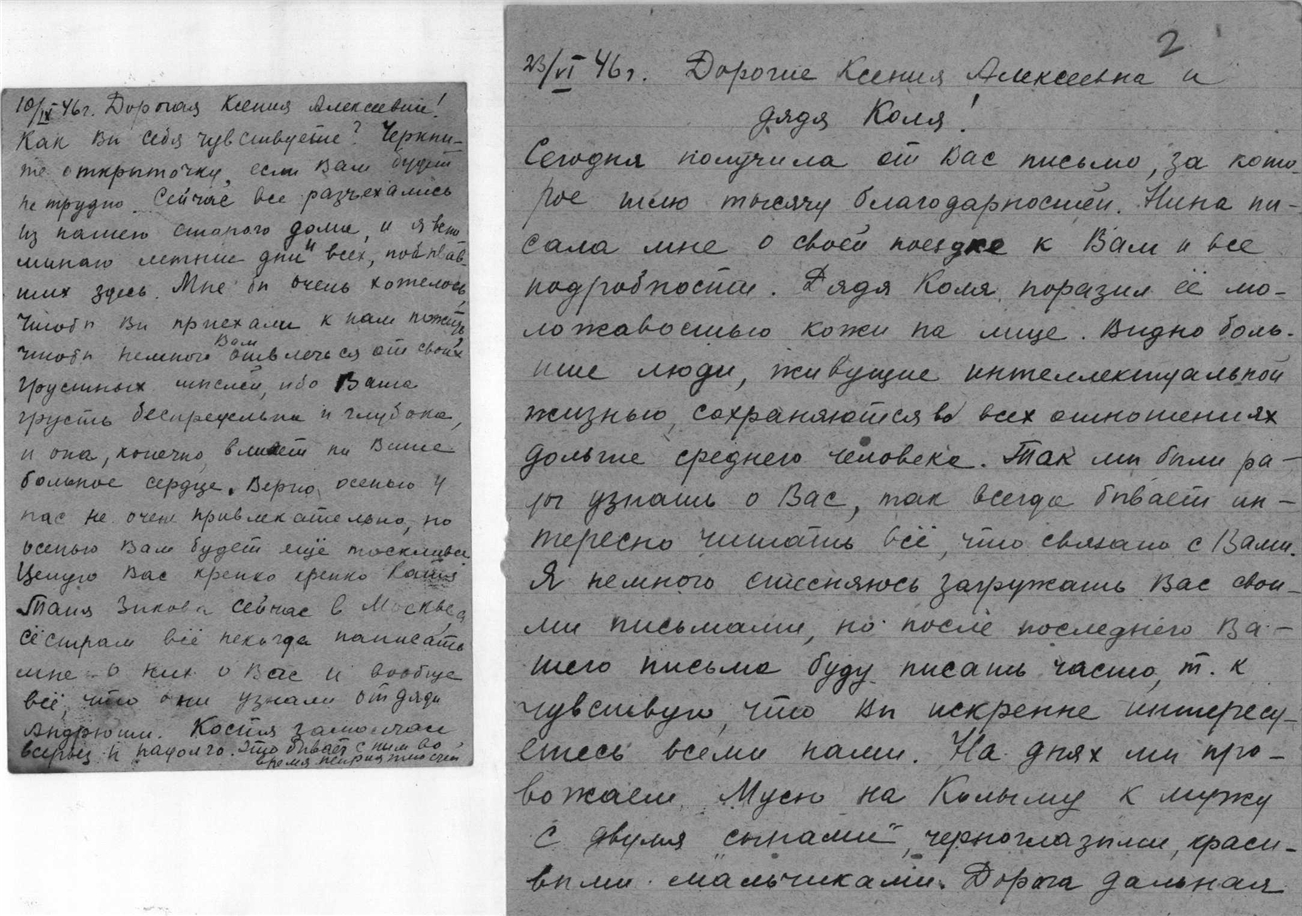 10/IX 46г. Дорогая Ксения Алексеевн!
Как Вы себя чувствуете? Черкни-
те открыточку, если Вам будет
не трудно. Сейчас все разъехались
из нашего старого дома, и я вспо
минаю летние дни и всех, побывав-
ших здесь. Мне бы очень хотелось,
чтобы Вы приехали к нам пожить
чтобы немного Вам отвлечься от своих
грустных мыслей, ибо Ваша
грусть беспредельна и глубока,
и она, конечно, влияет на Ваше
больное сердце. Верно, осенью у
нас не очен привлекательно, но
осенью Вам будет ещё тоскливее
Целую Вас крепко крепко Ваша
Таня Зыкова сейчас в Москве, а
сёстрам всё некогда написать
мне о них о Вас и вообще
всё, что они узнали от дяди
Андрюши. Костя замолчал
всерьёз и надолго. Это бывает с ним во
время неприятностей
2
23/VI 46г. Дорогие Ксения Алексеевна и
дядя Коля!
Сегодня получила от Вас письмо, за кото-
рое шлю тысячу благодарностей. Нина пи-
сала мне о своей поездке к Вам и все
подробности. Дядя Коля поразил её мо-
ложавостью кожи на лице. Видно боль-
шие люди, живущие интеллектуальной
жизнью, сохраняются во всех отношениях
дольше среднего человека. Так мы были ра-
ды узнать о Вас, так всегда бывает ин-
тересно читать всё, что связано с Вами.
Я немного стесняюсь загружать Вас свои-
ми письмами, но после последнего Ва-
шего письма буду писать часто, т. к
чувствую, что Вы искренне интересу-
етесь всеми нами. На днях мы про-
вожаем Мусю на Колыму к мужу
с двумя "сынами", черноглазыми, краси-
выми мальчиками. Дорога дальная